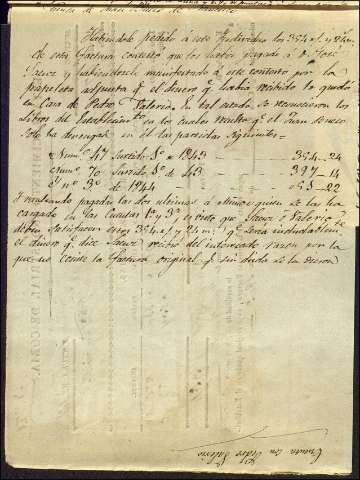 Habiendole pedido á este Individuo los 354 r.s y 24 m.s
de esta factura contestó que los habia pagado á D. José
Saenz y habiendosele manifestado á este contestó por la
papeleta adjunta q.e el dinero q.e habia recibido lo quedó
en Casa de Pedro Valerio. En tal estado se reconocieron los
Libros del Establecim.to en los cuales resultó q.e el Juan
solo ha devengado en el las partidas siguientes
Num.o 47 Surtido 3.o de 1843 354 24
Num.o 70 Surtido 5.o de 43 397 14
Y n.o 3.o de 1844 65 22
Y resultando pagadas las dos ultimas á quien se las ha
cargado en las Cuentas 1.a y 3.a es visto que Saenz ó Valerio
deben satisfacer estos 354 r.s y 24 m.s q.e será indudablem.te
el dinero q.e dice Saenz recibió del interesado razon por la
que se remite la factura original q.e sin duda se la dieron
Cuenta con Pedro Valerio